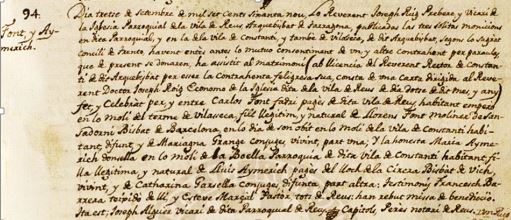 94.
Font, y Aymerich.
Dia tretse de Setembre de mil set cents sinanta nou, Lo Reverent Joseph Roig Prebere y Vicari de
la Iglesia Parroquial de la Vila de Reus, Arquebisbat de Tarragona, publicadas las tres solitas monicions
en dita Parroquial, y en la de la vila de Constanti, y tambe de Vilaseca, de dit Arquebisbat, segons lo Sagrat
concili de Trento, havent entes antes lo mutuo consentiment de un, y altre contrahent per paraulas
que de present se donaren, ha assistit al matrimoni (ab llicencia del Reverent Rector de Constanti
de dit Arquebisbat per esser la Contrahenta feligresa sua, consta de una Carta dirigida al Reverent
Doctor Joseph Roig Economo de la Iglesia dita de la vila de Reus de dia dotse de dit mes, y any)
fet, y Celebrat per, y entre Carlos Font fadri pagès de dita Vila de Reus, habitant empero
en lo Moli del terme de Vilaseca, fill llegitim, y natural de Llorens Font Moliner de San
Sadorni Bisbat de Barcelona, en lo dia de son obit en lo moli de la Vila de Constanti habitant,
difunt, y de Mariagna Grange conjuges vivint, part una; Y la honesta Maria Aymerich
donsella en lo moli de la Boella Parroquia de dita Vila de Constanti habitant, filla
llegitima, y natural de Lluis Aymerich pages del lloch de la Cirera Bisbat de Vich,
vivint, y de Catharina conjuges difunta part altra; Testimonis Francesch Barreras
de Vi, y Esteve Marçal Pastor, tots de Reus; han rebut missa de benedicio.
Ita est; Joseph Alguer vicari de dita Parroquial de Reus, y Capitols, Pera notari de Reus.